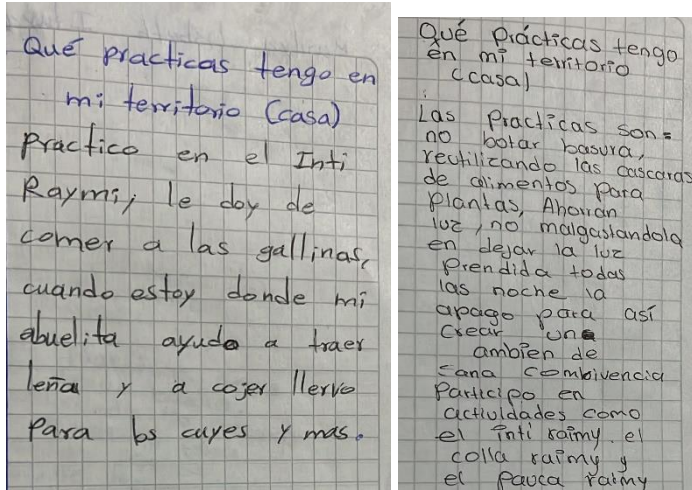 Qué practicas tengo en
mi territorio (casa)
Practico en el Inti
Raymi, le doy de
comer a las gallinas,
cuando estoy donde mi
abuelita ayudo a traer
leña y a cojer llervo
para los cuyes y mas.
Qué Prácticas tengo
en mi territorio
(casa)
Las Practicas son:
no botar basura,
reutilizando las cascaras
de alimentos para
plantas, Ahorran
luz, no malgastandola
en dejar la luz
prendida todas
las noche la
apago para así
crear una
ambien de
sana combivencia
Participo en
actividades como
el inti raimy, el
colla raimy y
el pauca raimy